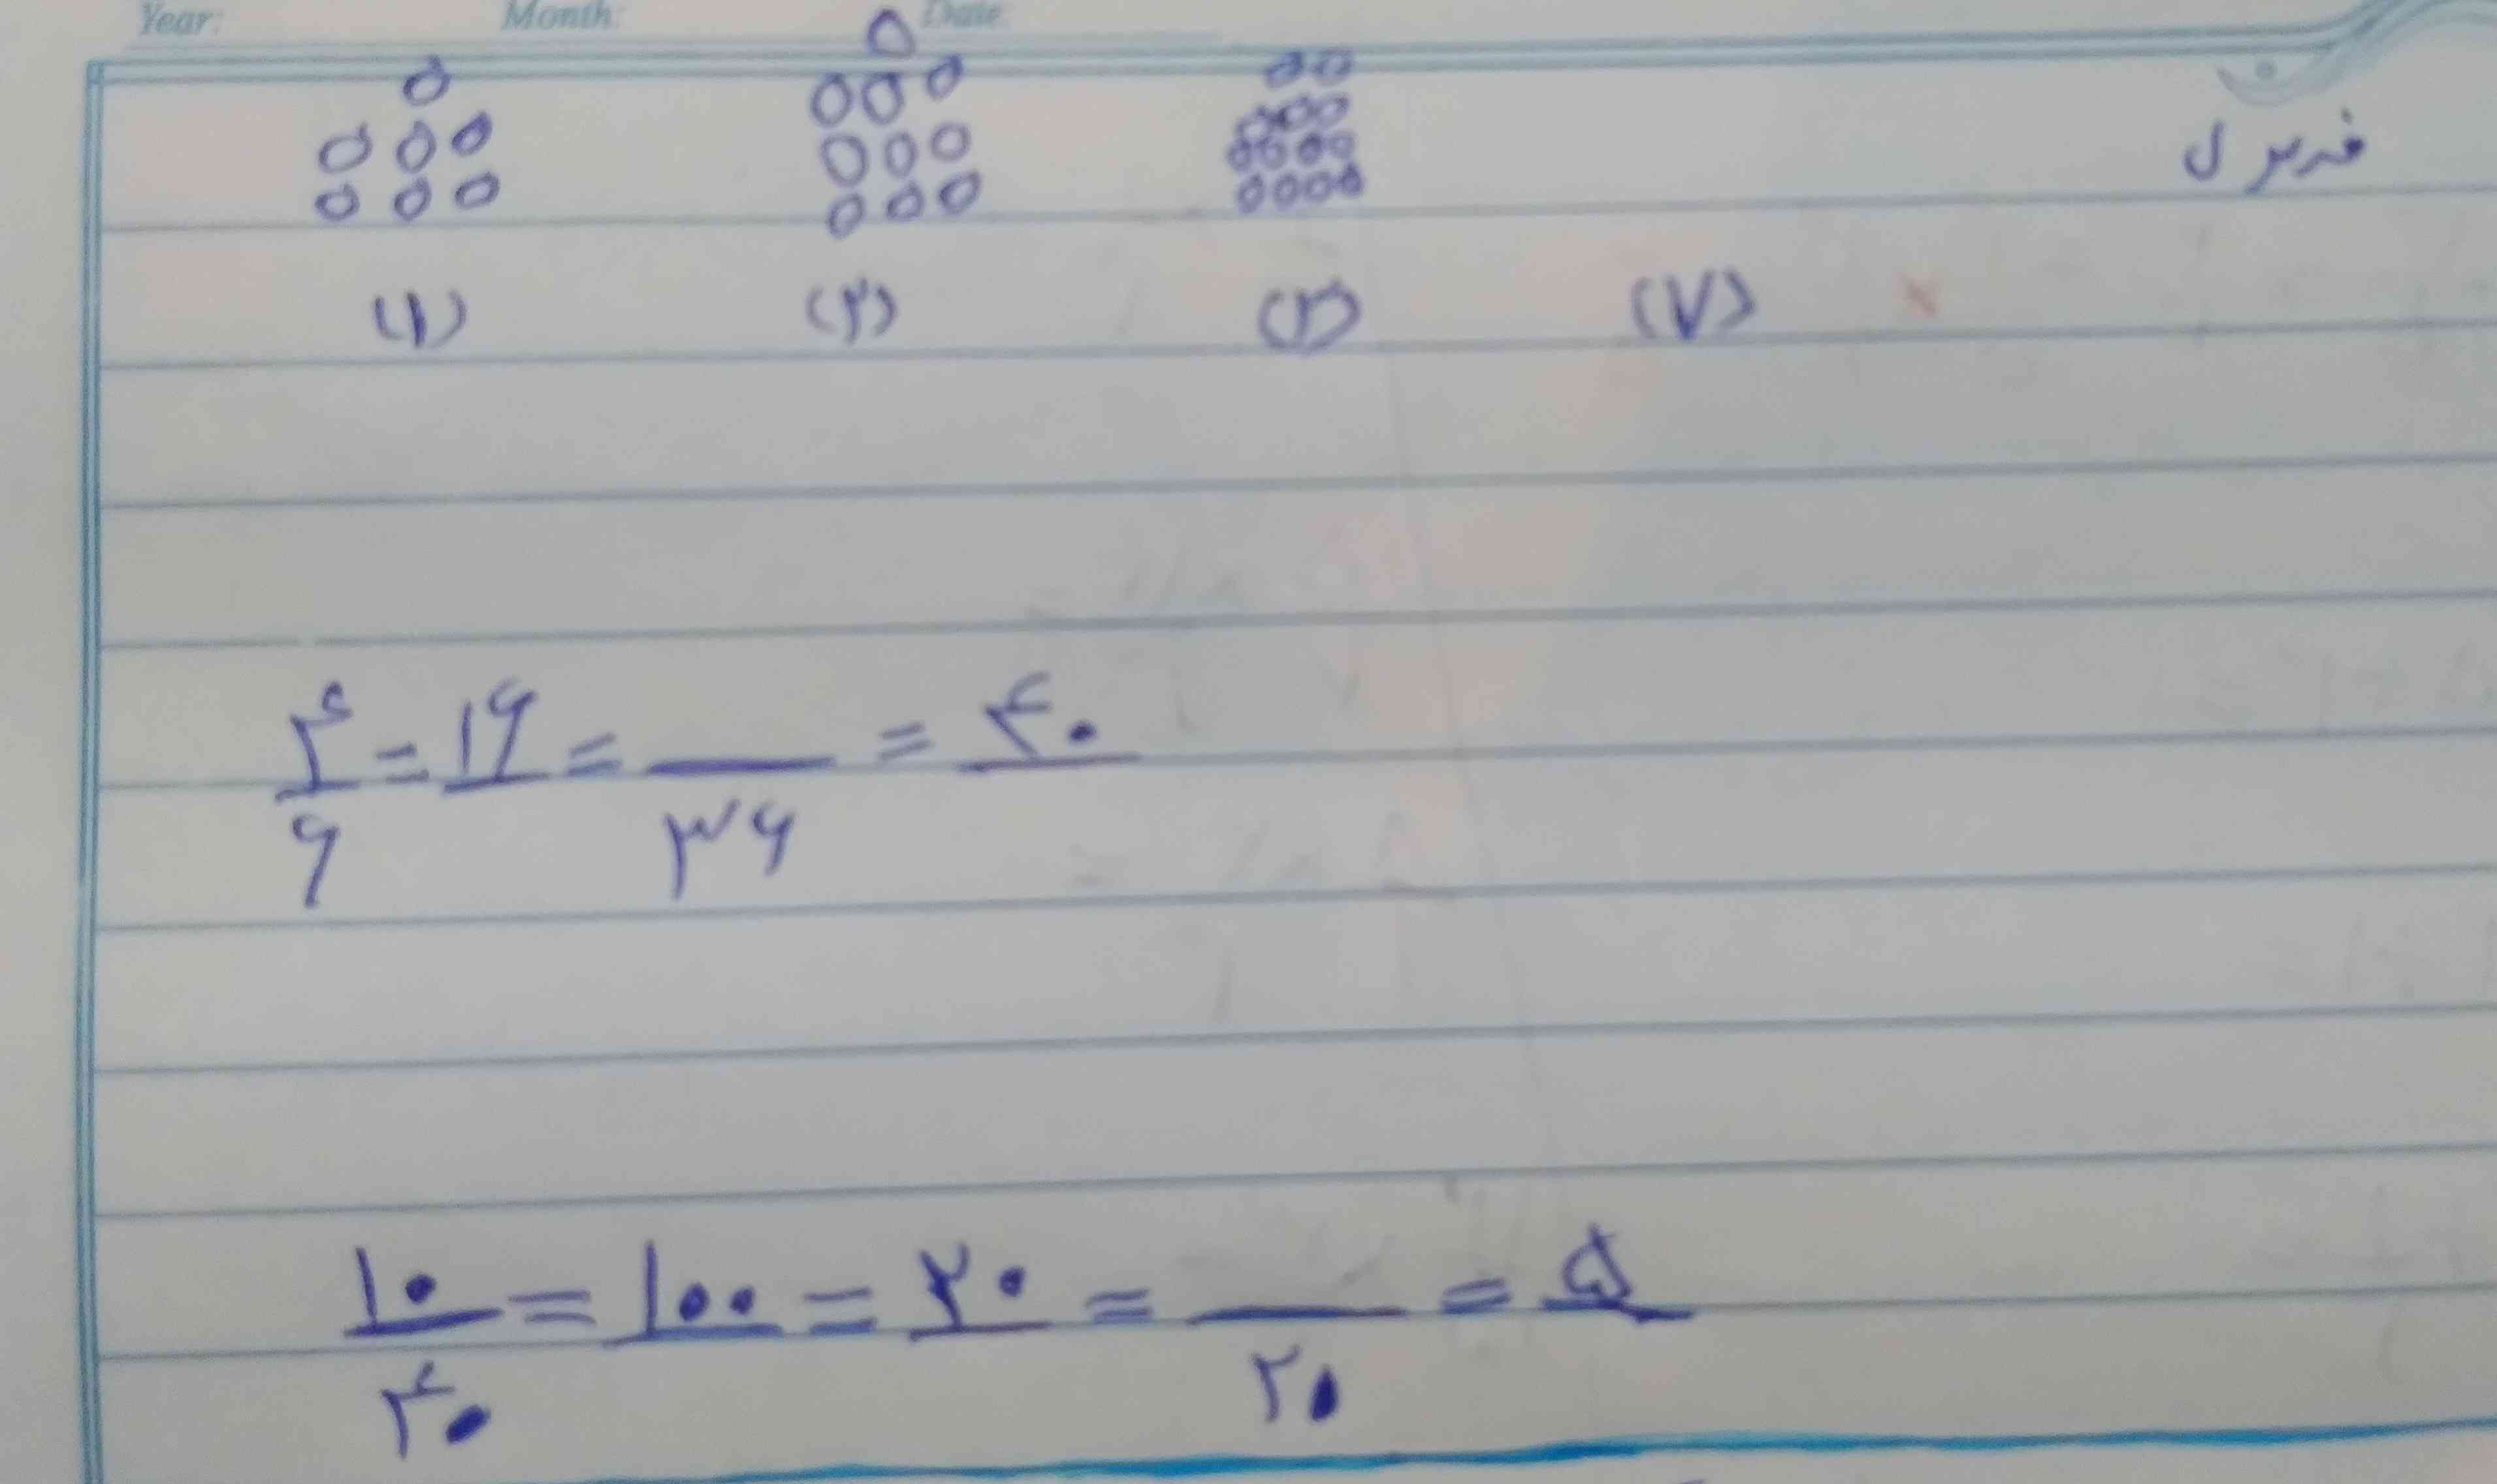 Year: Month: Date:
فرمول
(۱) (۲) (۳) (۷)
۴/۶ = ۱۶/ = /۳۶ = ۴۰/
۱۰/۴۰ = ۱۰۰/ = ۲۰/ = /۲۰ = ۵/